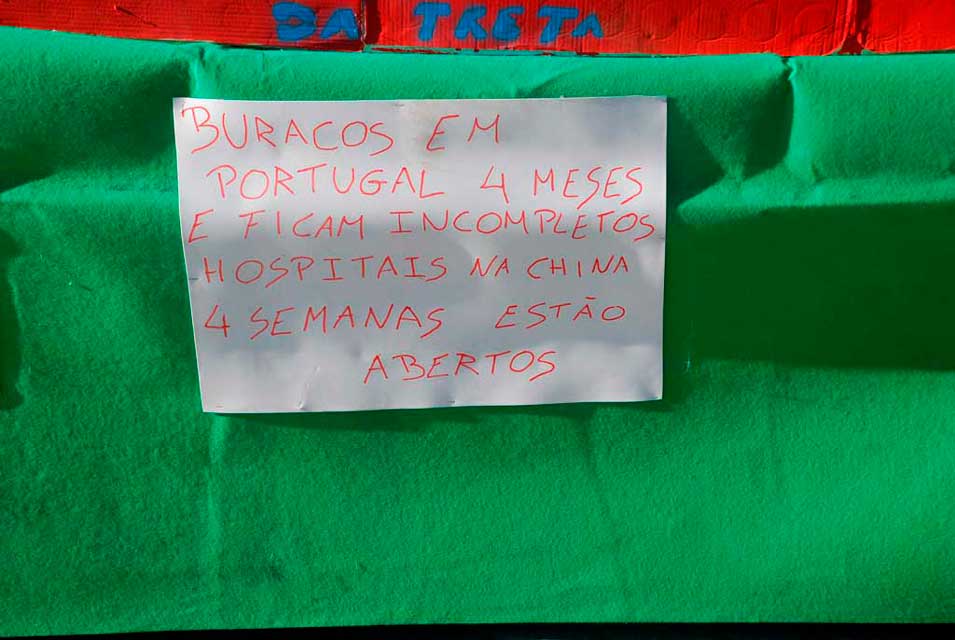 DA TRETA
BURACOS EM
PORTUGAL 4 MESES
E FICAM INCOMPLETOS
HOSPITAIS NA CHINA
4 SEMANAS ESTÃO
ABERTOS